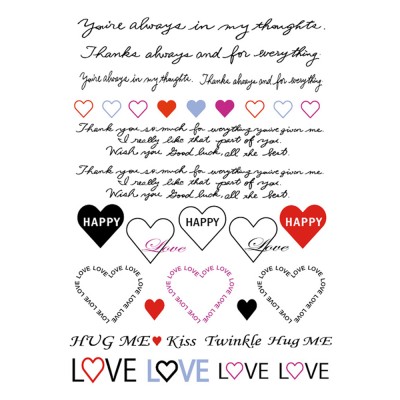 You're always in my thoughts.
Thanks always and for everything.
You're always in my thoughts. Thanks always and for everything.
Thank you so much for everything you've given me.
I really like that part of you.
Wish you Good luck, all the best.
Thank you so much for everything you've given me.
I really like that part of you.
Wish you Good luck, all the best.
HAPPY HAPPY HAPPY
Love Love
LOVE LOVE LOVE LOVE LOVE LOVE LOVE LOVE LOVE LOVE LOVE LOVE LOVE LOVE LOVE LOVE LOVE LOVE LOVE LOVE LOVE LOVE LOVE LOVE
HUG ME Kiss Twinkle Hug ME
LOVE LOVE LOVE LOVE